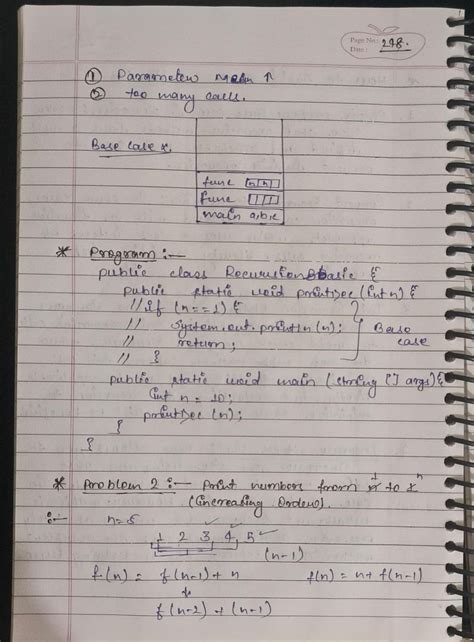 Page No.: 278.
Date:
① Parameter ↑
② too many calls.
Base case x.
func n n
func
main a,b,c
* Program :-
public class RecursionBasic {
public static void printDec (int n) {
// if (n==1) {
// System.out.println (n);
// return;
// }
Base case
public static void main (String [] args) {
int n = 10;
printDec (n);
}
}
* Problem 2 :- Print numbers from 1 to n
(Increasing Order).
:- n=5
1 2 3 4 5
(n-1)
f(n) = f(n-1) + n f(n) = n + f(n-1)
f(n-2) + (n-1)